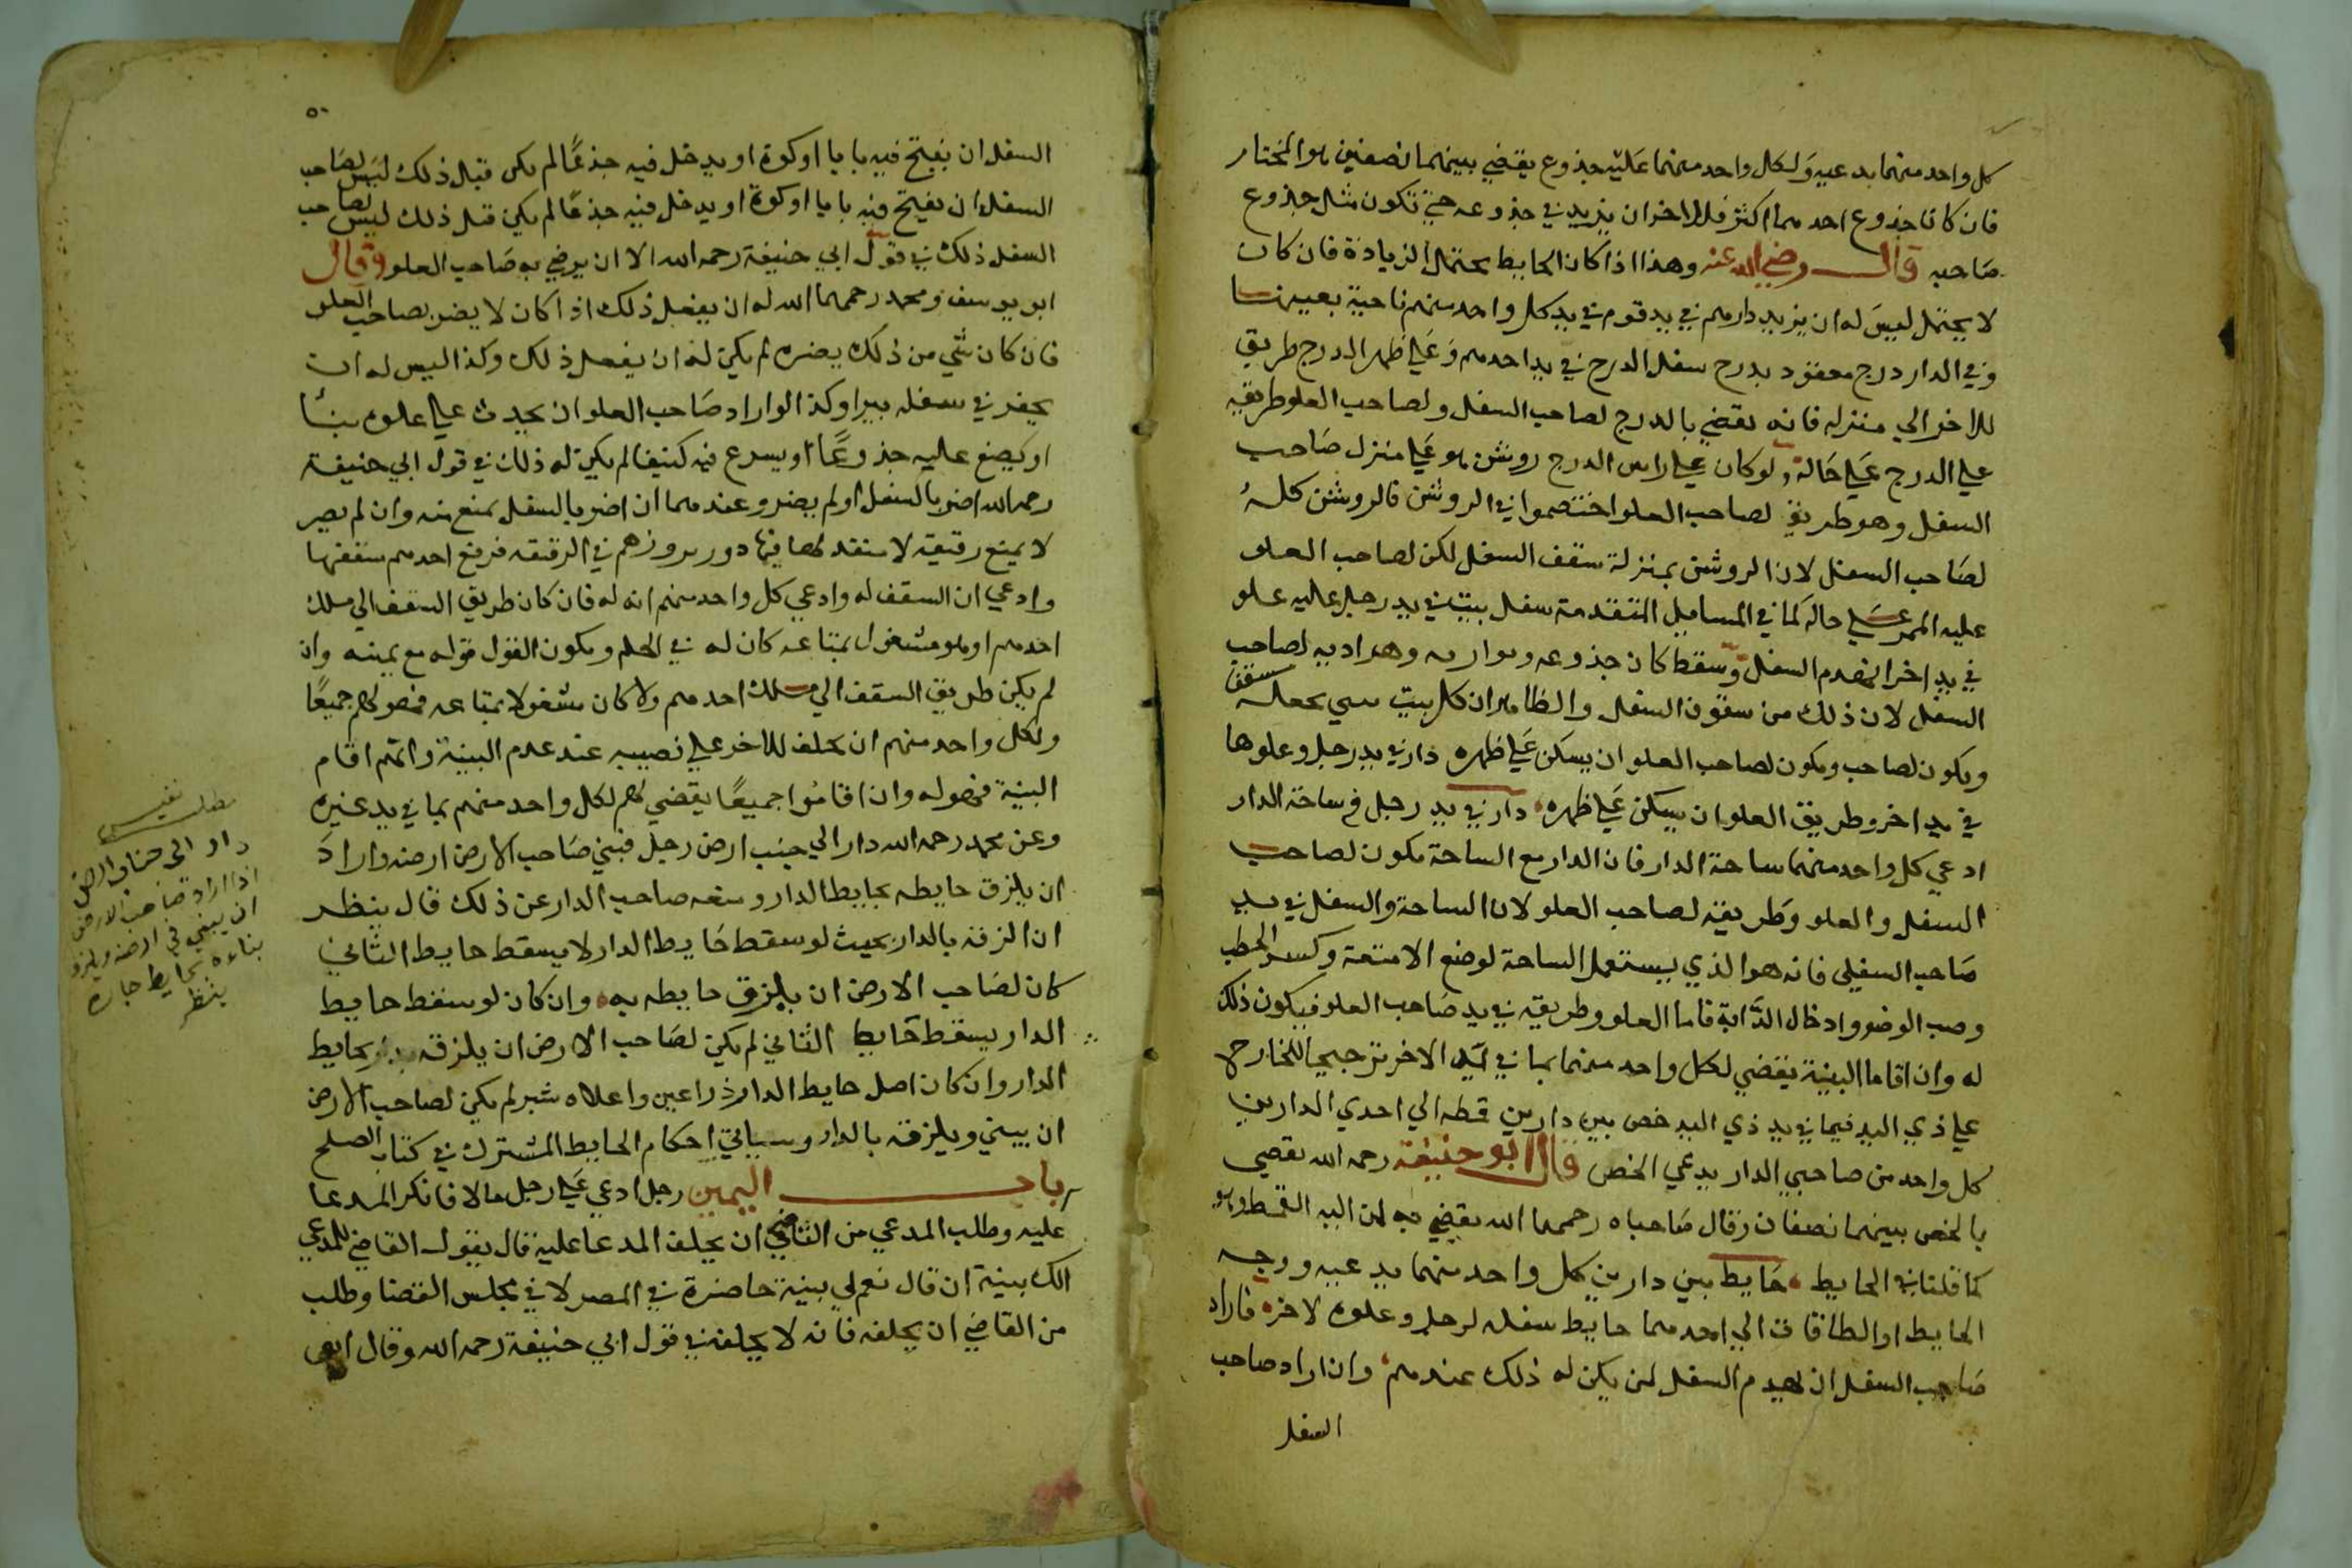 كل واحد منهما يدعيه ولكل واحد منهما عليه جذوع يقضي بينهما نصفين هو المختار
فان كانا جذوع احدهما اكثر فللاخر ان يزيد في جذوعه حتي تكون مثل جذوع
صاحبه قال رضي الله عنه وهذا اذا كان الحايط يحتمل الزيادة فان كان
لا يحتمل ليس له ان يزيد دارهم في يد قوم في يد كل واحد منهم ناحية بعينها
وفي الدار درج معقود يدرج سفل الدرج في يد احدهم وعلي ظهر الدرج طريق
للاخر الي منزله فانه يقضي بالدرج لصاحب السفل ولصاحب العلو طريقه
علي الدرج علي حاله ولو كان علي راس الدرج روشن هو علي منزل صاحب
السفل وهو طريق لصاحب العلو اختصموا في الروشن فالروشن كله
لصاحب السفل لان الروشن بمنزلة سقف السفل لكن لصاحب العلو
عليه الممر علي حاله كما في المسايل المتقدمة سفل بيت في يد رجل عليه علو
في يد اخر انهدم السفل وسقط كان جذوعه وبواريه وهراديه لصاحب
السفل لان ذلك من سقوف السفل والظاهر ان كل بيت يبني يجعل سقف
ويكون لصاحب ويكون لصاحب العلو ان يسكن علي ظهره دار في يد رجل وعلوها
في يد اخر وطريق العلو ان يسكن علي ظهره دار في يد رجل في ساحة الدار
ادعي كل واحد منهما ساحة الدار فان الدار مع الساحة يكون لصاحب
السفل والعلو وطريقه لصاحب العلو لان الساحة والسفل في يد
صاحب السفلي فانه هو الذي يستعمل الساحة لوضع الامتعة وكسر الحطب
وصب الوضوء وادخال الدابة فاما العلو وطريقه في يد صاحب العلو فيكون ذلك
له وان اقاما البينة يقضي لكل واحد منهما بما في يد الاخر ترجيحا للخارج
علي ذي اليد فيما في يد ذي اليد خص بين دارين قمطه الي احدي الدارين
كل واحد من صاحبي الدار يدعي الخص قال ابو حنيفة رحمه الله يقضي
بالخص بينهما نصفان وقال صاحباه رحمهما الله يقضي به لمن اليه القمط وهو
كما قلنا في الحايط حايط بين دارين كل واحد منهما يدعيه ووجه
الحايط او الطاقات الي احدهما حايط سفله لرجل وعلوه لاخر فاراد
صاحب السفل ان يهدم السفل لمن يكن له ذلك عندهم وان اراد صاحب
السفل
٥٠
السفل ان يفتح فيه بابا او كوة او يدخل فيه جذعا لم يكن قبل ذلك ليس لصاحب
السفل ان يفتح فيه بابا او كوة او يدخل فيه جذعا لم يكن قبل ذلك ليس لصاحب
السفل ذلك في قول ابي حنيفة رحمه الله الا ان يرضي به صاحب العلو وقال
ابو يوسف ومحمد رحمهما الله له ان يفعل ذلك اذا كان لا يضر بصاحب العلو
فان كان شي من ذلك يضره لم يكن له ان يفعل ذلك وكذا ليس له ان
يحفر في سفله بيرا وكذا لو اراد صاحب العلو ان يحدث علي علوه بنا
او يضع عليه جذوعا او يسرع فيه كنيفا لم يكن له ذلك في قول ابي حنيفة
رحمه الله اضر بالسفل او لم يضر وعندهما ان اضر بالسفل يمنع منه وان لم يضر
لا يمنع رقيقة لا منفذ لها فيها دور في الرقيقه فرفع احدهم سقفها
وادعي ان السقف له وادعي كل واحد منهم انه له فان كان طريق السقف الي ملك
احدهم او هو مشغول بمتاعه كان له في الحكم ويكون القول قوله مع يمينه وان
لم يكن طريق السقف الي ملك احدهم ولا كان مشغولا بمتاعه فهو لهم جميعا
ولكل واحد منهم ان يحلف للاخر علي نصيبه عند عدم البينة وايهم اقام
البينة فهو له وان اقاموا جميعا يقضي لهم لكل واحد منهم بما في يد غيره
وعن محمد رحمه الله دار الي جنب ارض رجل فبني صاحب الارض ارضه واراد
ان يلزق حايطه بحايط الدار ومنعه صاحب الدار عن ذلك قال ينظر
ان الزقه بالدار بحيث لو سقط حايط الدار لا يسقط حايط الثاني
كان لصاحب الارض ان يلزق حايطه به وان كان لو سقط حايط
الدار يسقط حايط الثاني لم يكن لصاحب الارض ان يلزقه بحايط
الدار وان كان اصل حايط الدار ذراعين واعلاه شبر لم يكن لصاحب الارض
ان يبني ويلزقه بالدار وسياتي احكام الحايط المشترك في كتاب الصلح
باب اليمين رجل ادعي علي رجل مالا فانكر المدعا
عليه وطلب المدعي من القاضي ان يحلف المدعا عليه قال يقول القاضي للمدعي
الك بينة ان قال نعم لي بينة حاضرة في المصر لا في مجلس القضا وطلب
من القاضي ان يحلفه فانه لا يحلفه في قول ابي حنيفة رحمه الله وقال ابو
مطلب نفيس
دار الي جنب ارض
اذا اراد صاحب الارض
ان يبني في ارضه ويلزق
بناءه بحايط جاره
ينظر